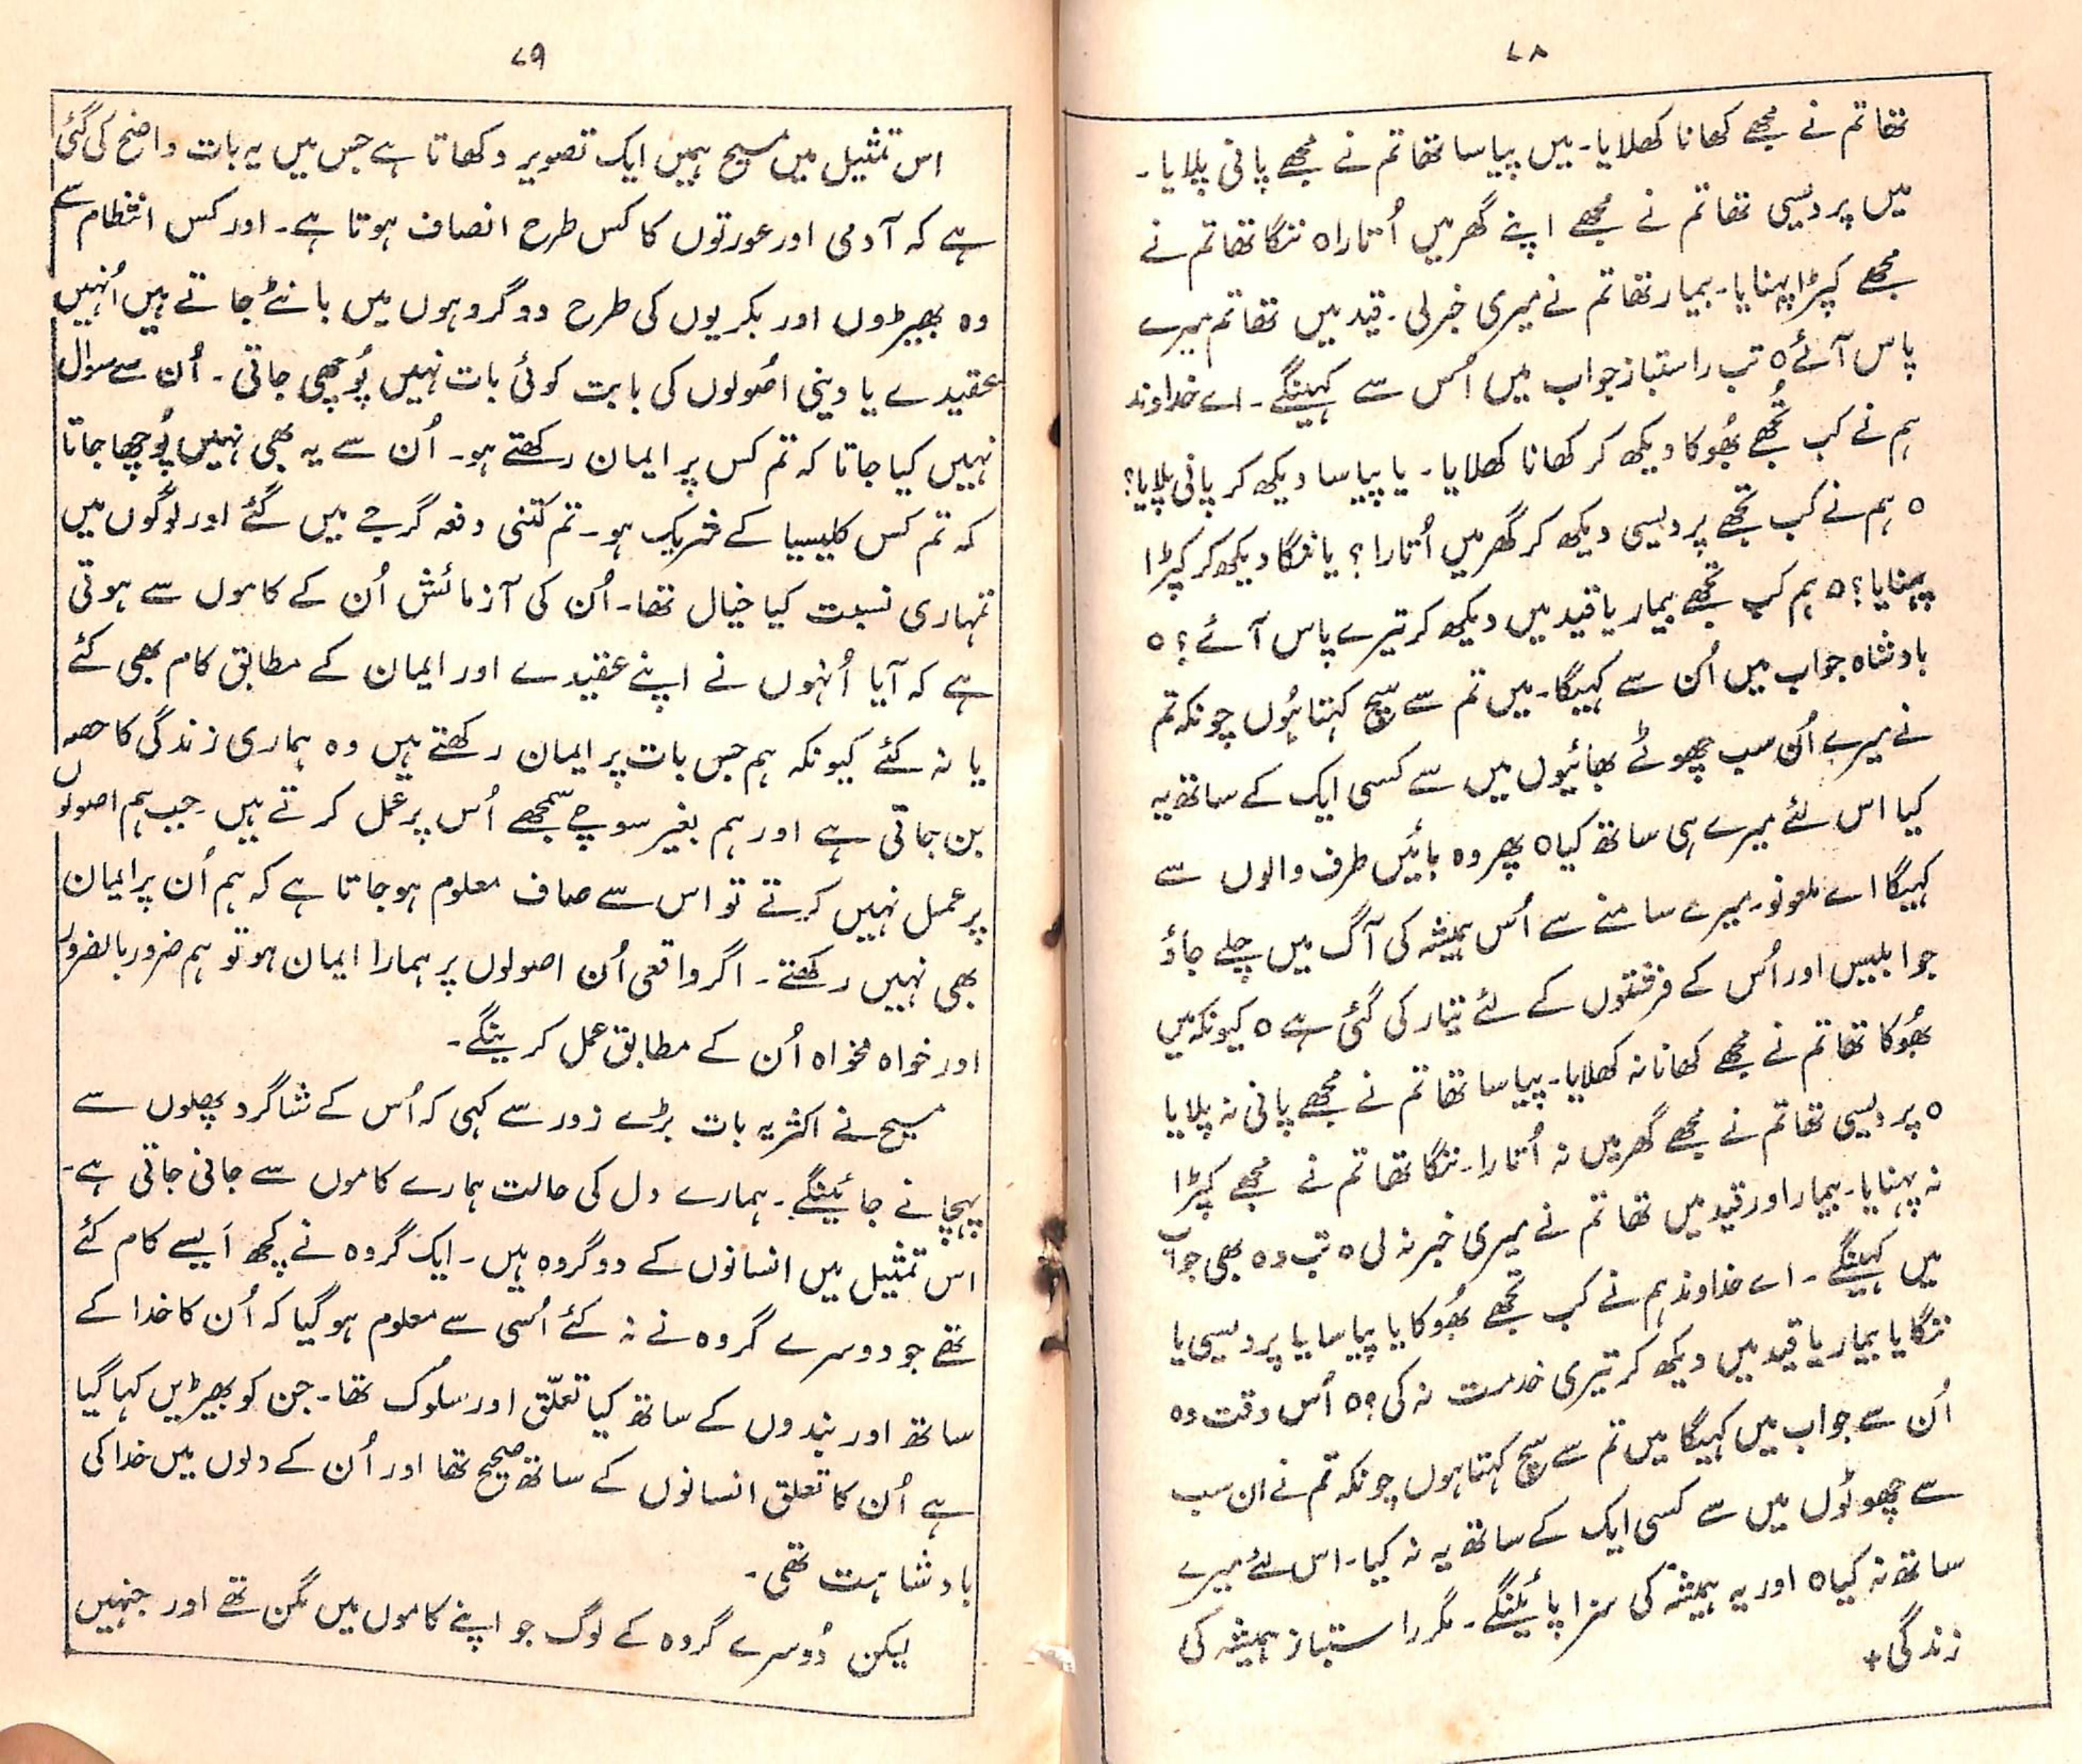 ۷۸
تھا تم نے مجھے کھانا کھلایا۔ میں پیاسا تھا تم نے مجھے پانی پلایا۔
میں پردیسی تھا تم نے مجھے اپنے گھر میں اُتارا ہ ننگا تھا تم نے
مجھے کپڑا پہنایا۔ بیمار تھا تم نے میری خبر لی۔ قید میں تھا تم میرے
پاس آئے ہ تب راستباز جواب میں اُس سے کہینگے۔ اے خداوند
ہم نے کب تُجھے بھُوکا دیکھ کر کھانا کھلایا۔ یا پیاسا دیکھ کر پانی پلایا؟
ہ ہم نے کب تجھے پردیسی دیکھ کر گھر میں اُتارا؟ یا ننگا دیکھ کر کپڑا
پہنایا؟ ہ ہم کب تجھے بیمار یا قید میں دیکھ کر تیرے پاس آئے؟ ہ
بادشاہ جواب میں اُن سے کہیگا۔ میں تم سے سچ کہتا ہُوں چونکہ تم
نے میرے اُن سب چھوٹے بھائیوں میں سے کسی ایک کے ساتھ یہ
کیا اس لئے میرے ہی ساتھ کیا ہ پھر وہ بائیں طرف والوں سے
کہیگا اے ملعونو۔ میرے سامنے سے اُس ہمیشہ کی آگ میں چلے جاؤ
جو ابلیس اور اُس کے فرشتوں کے لئے تیار کی گئی ہے ہ کیونکہ میں
بھُوکا تھا تم نے مجھے کھانا نہ کھلایا۔ پیاسا تھا تم نے مجھے پانی نہ پلایا
ہ پردیسی تھا تم نے مجھے گھر میں نہ اُتارا۔ ننگا تھا تم نے مجھے کپڑا
نہ پہنایا۔ بیمار اور قید میں تھا تم نے میری خبر نہ لی ہ تب وہ بھی جواب
میں کہینگے۔ اے خداوند ہم نے کب تجھے بھُوکا یا پیاسا یا پردیسی یا
ننگا یا بیمار یا قید میں دیکھ کر تیری خدمت نہ کی؟ ہ اُس وقت وہ
اُن سے جواب میں کہیگا میں تم سے سچ کہتا ہوں چونکہ تم نے ان سب
سے چھوٹوں میں سے کسی ایک کے ساتھ یہ نہ کیا۔ اس لئے میرے
ساتھ نہ کیا ہ اور یہ ہمیشہ کی سزا پائینگے۔ مگر راستباز ہمیشہ کی
زندگی +
۷۹
اس تمثیل میں مسیح ہمیں ایک تصویر دکھاتا ہے جس میں یہ بات واضح کی گئی
ہے کہ آدمی اور عورتوں کا کس طرح انصاف ہوتا ہے۔ اور کس انتظام سے
وہ بھیڑوں اور بکریوں کی طرح دو گروہوں میں بانٹے جاتے ہیں اُنہیں
عقیدے یا دینی اصُولوں کی بابت کوئی بات نہیں پُوچھی جاتی۔ اُن سے سوال
نہیں کیا جاتا کہ تم کس پر ایمان رکھتے ہو۔ اُن سے یہ بھی نہیں پُوچھا جاتا
کہ تم کس کلیسیا کے شریک ہو۔ تم کتنی دفعہ گرجے میں گئے اور لوگوں میں
تمہاری نسبت کیا خیال تھا۔ اُن کی آزمائش اُن کے کاموں سے ہوتی
ہے کہ آیا اُنہوں نے اپنے عقیدے اور ایمان کے مطابق کام بھی کئے
یا نہ کئے کیونکہ ہم جس بات پر ایمان رکھتے ہیں وہ ہماری زندگی کا حصہ
بن جاتی ہے اور ہم بغیر سوچے سمجھے اُس پر عمل کرتے ہیں۔ جب ہم اصولوں
پر عمل نہیں کرتے تو اس سے صاف معلوم ہو جاتا ہے کہ ہم اُن پر ایمان
بھی نہیں رکھتے۔ اگر واقعی اُن اصولوں پر ہمارا ایمان ہو تو ہم ضرور بالضرور
اور خواہ مخواہ اُن کے مطابق عمل کرینگے۔
مسیح نے اکثر یہ بات بڑے زور سے کہی کہ اُس کے شاگرد پھلوں سے
پہچانے جائینگے۔ ہمارے دل کی حالت ہمارے کاموں سے جانی جاتی ہے۔
اس تمثیل میں انسانوں کے دو گروہ ہیں۔ ایک گروہ نے کچھ اَیسے کام کئے
تھے جو دوسرے گروہ نے نہ کئے اُسی سے معلوم ہو گیا کہ اُن کا خدا کے
ساتھ اور بندوں کے ساتھ کیا تعلّق اور سلُوک تھا۔ جن کو بھیڑیں کہا گیا
ہے اُن کا تعلق انسانوں کے ساتھ صحیح تھا اور اُن کے دلوں میں خدا کی
بادشاہت تھی۔
لیکن دُوسرے گروہ کے لوگ جو اپنے کاموں میں مگن تھے اور جنہیں